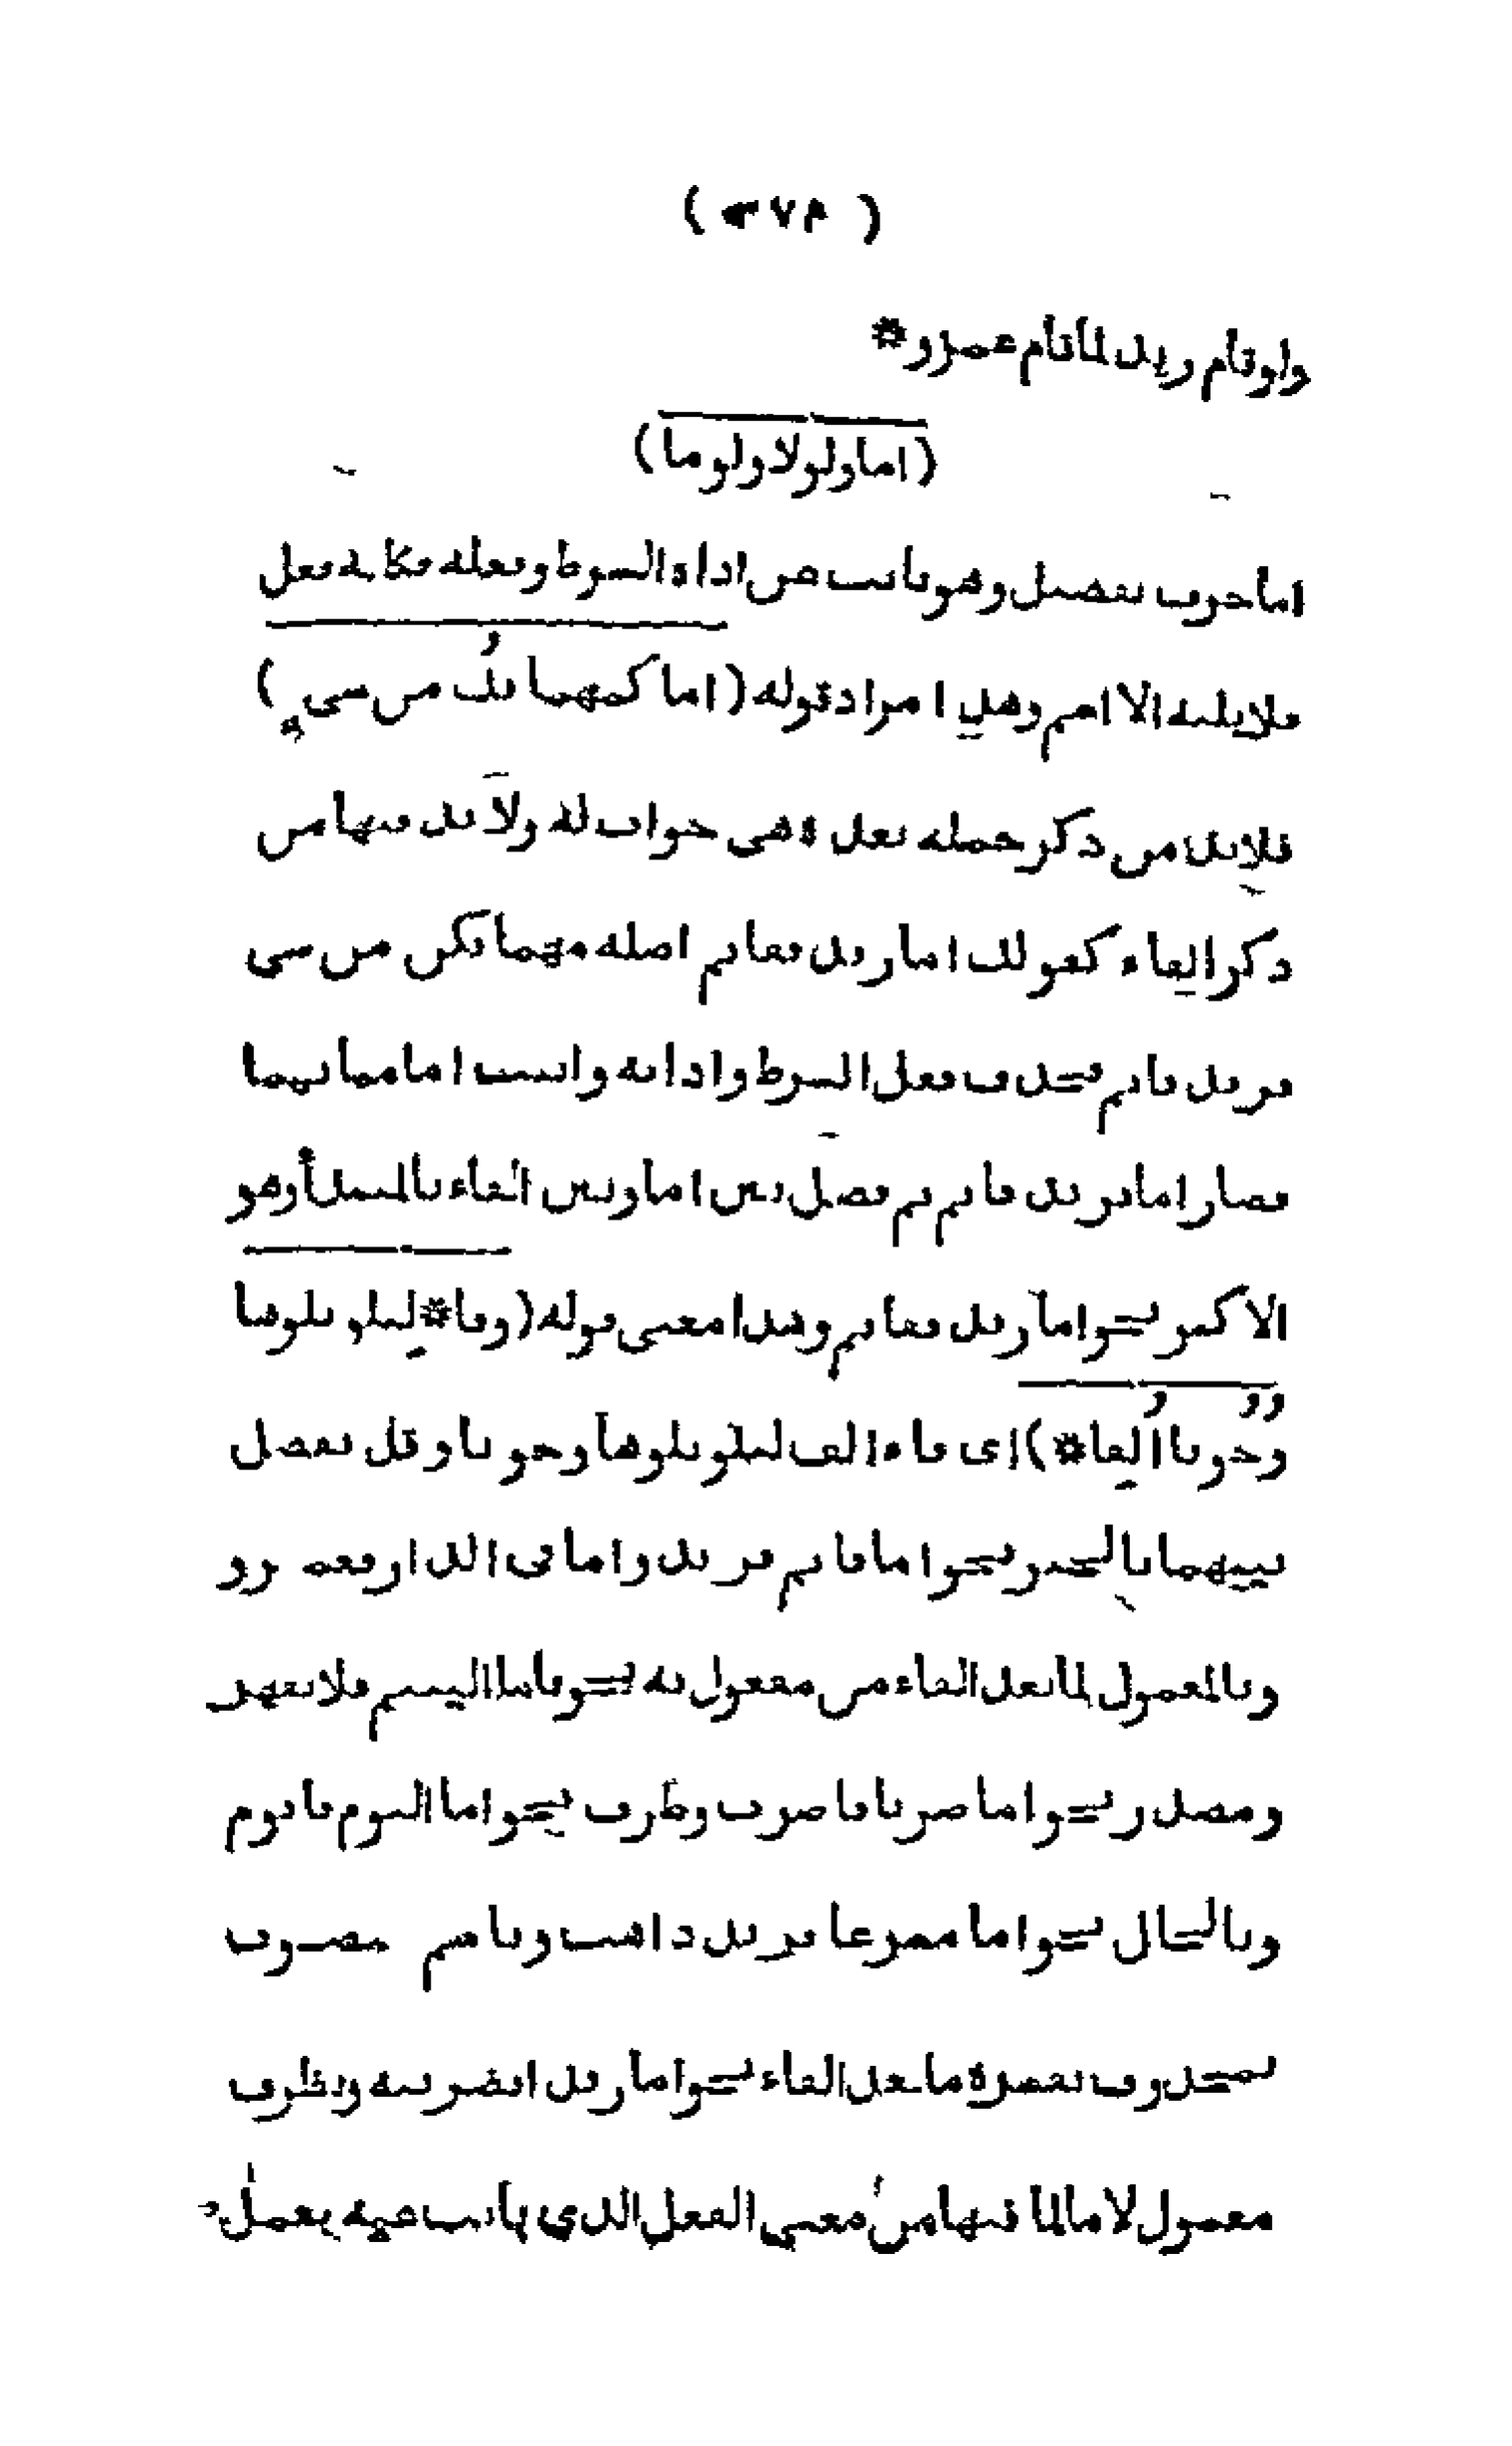 ( ٣٧٣ )
ولو قام زيد لما قام عمرو *
( اما ولولا ولوما )
اما حرف تفصيل وهو نائب عن اداة الشرط وفعله فكانه فعل
فلا يليه الا اسم وهذا مراد قوله ( اما كمهما يك من شيء )
فلابد من ذكر جملة بعده هي جواب له ولا بد فيها من
ذكر الفاء كقولك اما زيد فقايم اصله مهما يكن من شي
فزيد قايم فحذف فعل الشرط واداته وانيبت اما منابهما
فصار اما فزيد قايم ثم فصل بين اما وبين الفاء بالمبتدأ وهو
الاكثر نحو اما زيد فقايم وهذا معنى قوله ( وفا * لتلو تلوها
وجوبا الفا * ) اى فاء الف لتلو تلوها وجوبا وقد تفصل
بينهما بالخبر نحو اما قايم فزيد واما فى الدار فعمرو
وبالمعمول لما بعد الفاء من مفعول به نحو فاما اليتيم فلا تقهر
ومصدر نحو اما ضربا فاضرب وظرف نحو اما اليوم فاقوم
وبالحال نحو اما مسرعا فزيد ذاهب وباسم منصوب
بمحذوف تفسره ما بعد الفاء نحو اما زيد افضربته وبظرف
معمول لاما لما فيها من معنى الفعل الذي نابت عنه بعمل